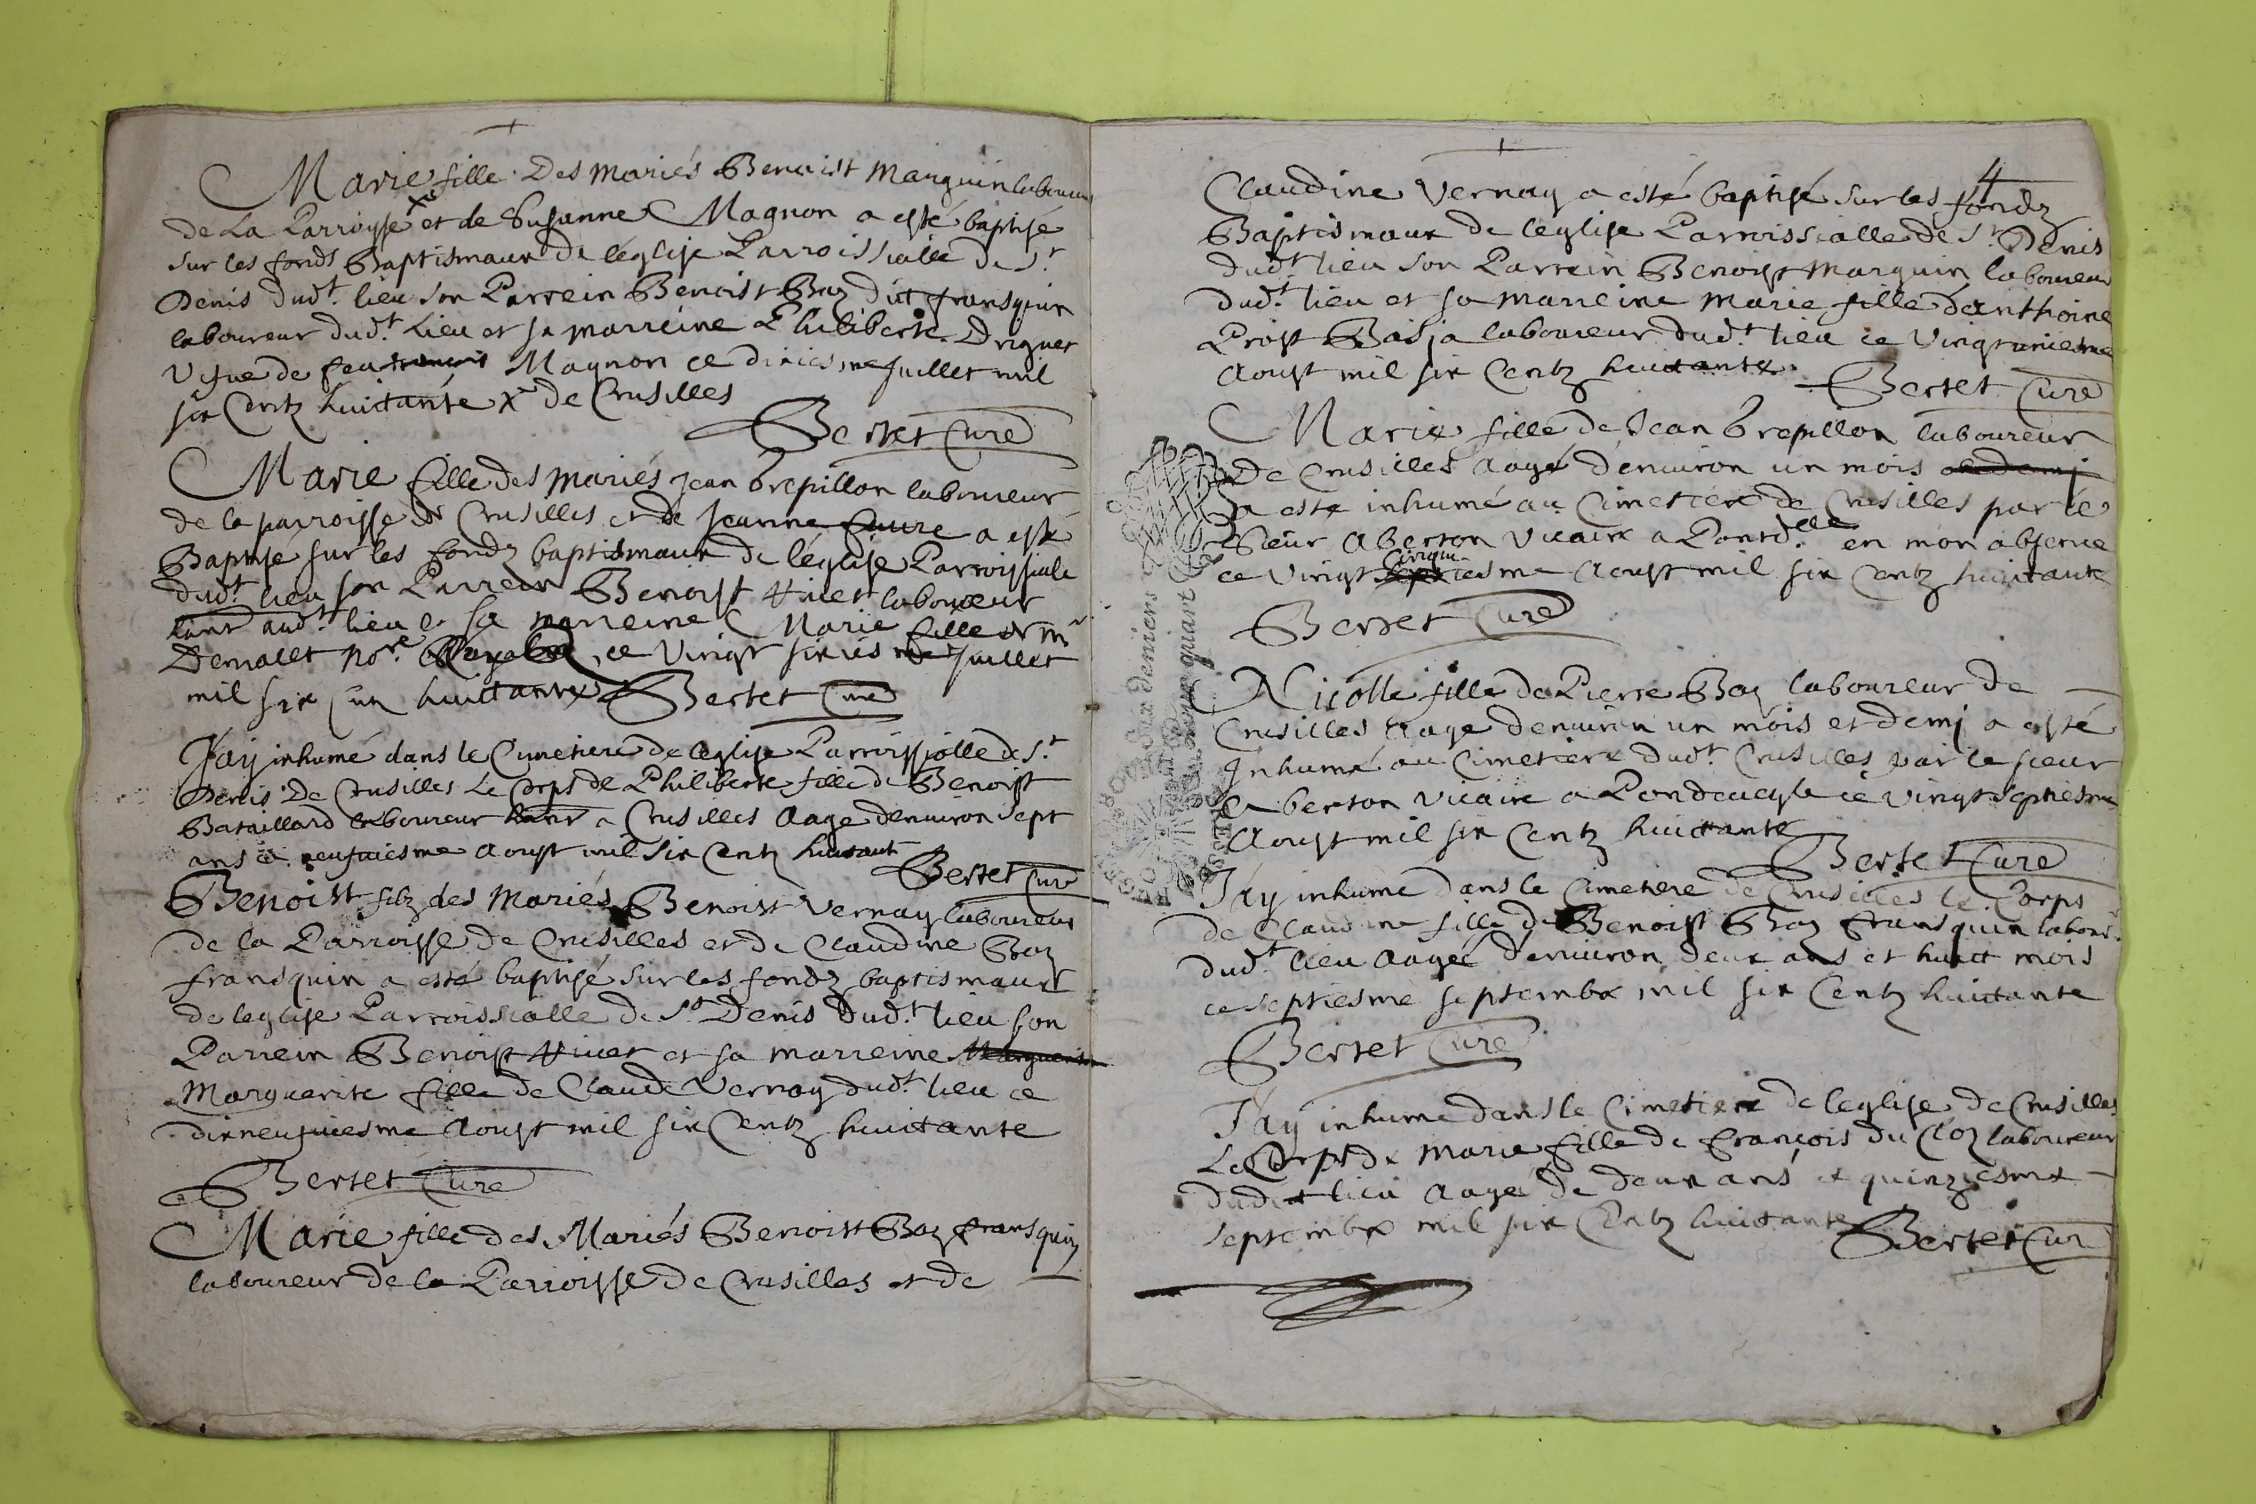 Marie fille Des Mariés Benoist Marguin laboureur
de La Parroysse x et de Susanne Magnon a esté baptisé
sur les fonds Baptismaux de léglise Parroissialle de St
Denis dudt. lieu son Parrein Benoist Baz dit fransquin
laboureur dudt. Lieu et sa marreine Philiberte
vefve de feu Magnon ce dixiesme Juillet mil
six Centz huictante x de Crusilles
Bertet Curé
Marie fille des Mariés Jean brepillon laboureur
de la parroisse de Crusilles et de Jeanne a esté
Baptisé sur les fondz baptismaux de léglise Parroissiale
dudt. lieu son Parrein Benoist laboureur
audt. lieu et sa marreine Marie fille de mr
Demallet Nore. ce vingt sixiesme Juillet
mil six huictante Bertet Curé
Jay inhumé dans le Cimetiere de leglise Parroissialle de St
Denis De Crusilles Le Corps de Philiberte fille de Benoist
Bataillard laboureur a Crusilles Aage denviron sept
ans ce neufviesme Aoust mil six Centz huictante
Bertet Curé
Benoist filz des Mariés Benoist Vernay laboureur
de la Parroisse de Crusilles et de Claudine Baz
fransquin a esté baptisé sur les fondz baptismaux
de leglise Parroissialle de St Denis dudt. lieu son
Parrein Benoist et sa marreine Marguerite
Marguerite fille de Claude Vernay dudt. lieu ce
dixneufviesme Aoust mil six Centz huictante
Bertet Curé
Marie fille des Mariés Benoist Baz fransquin
laboureur de la Parroisse de Crusilles et de
4
Claudine Vernay a esté baptisé sur les fondz
Baptismaux de leglise Parroissialle de St Denis
dudt. lieu son Parrein Benoist Marguin laboureur
dudt. lieu et sa marreine Marie fille danthoine
Prost laboureur dudt. lieu ce vingtuniesme
Aoust mil six Centz huictante
Bertet Curé
Marie fille de Jean brepillon laboureur
De Crusilles Aagé denviron un mois et demj
a esté inhumé au Cimetiere de Crusilles par le
Sieur Aberton Vicaire a en mon absence
cinqu
ce vingt iesme Aoust mil six Centz huictante
Bertet Curé
Nicolle fille de Pierre Baz laboureur de
Crusilles Aage denviron un mois et demj a esté
Inhumé au Cimetiere dudt. Crusilles par le sieur
Aberton Vicaire a Pondeveyle ce vingtseptiesme
Aoust mil six Centz huictante
Bertet Curé
Jay inhumé dans le Cimetiere de Crusilles le Corps
de Claudine fille de Benoist Baz fransquin labour.
dudt. lieu Aagée denviron deux ans et huict mois
ce septiesme septembre mil six Centz huictante
Bertet Curé
Jay inhumé dans le Cimetiere de leglise de Crusilles
Le Corps de Marie fille de François du Cloz laboureur
dudit lieu Aagé de deux ans ce quinziesme
septembre mil six Centz huictante
Bertet Cur